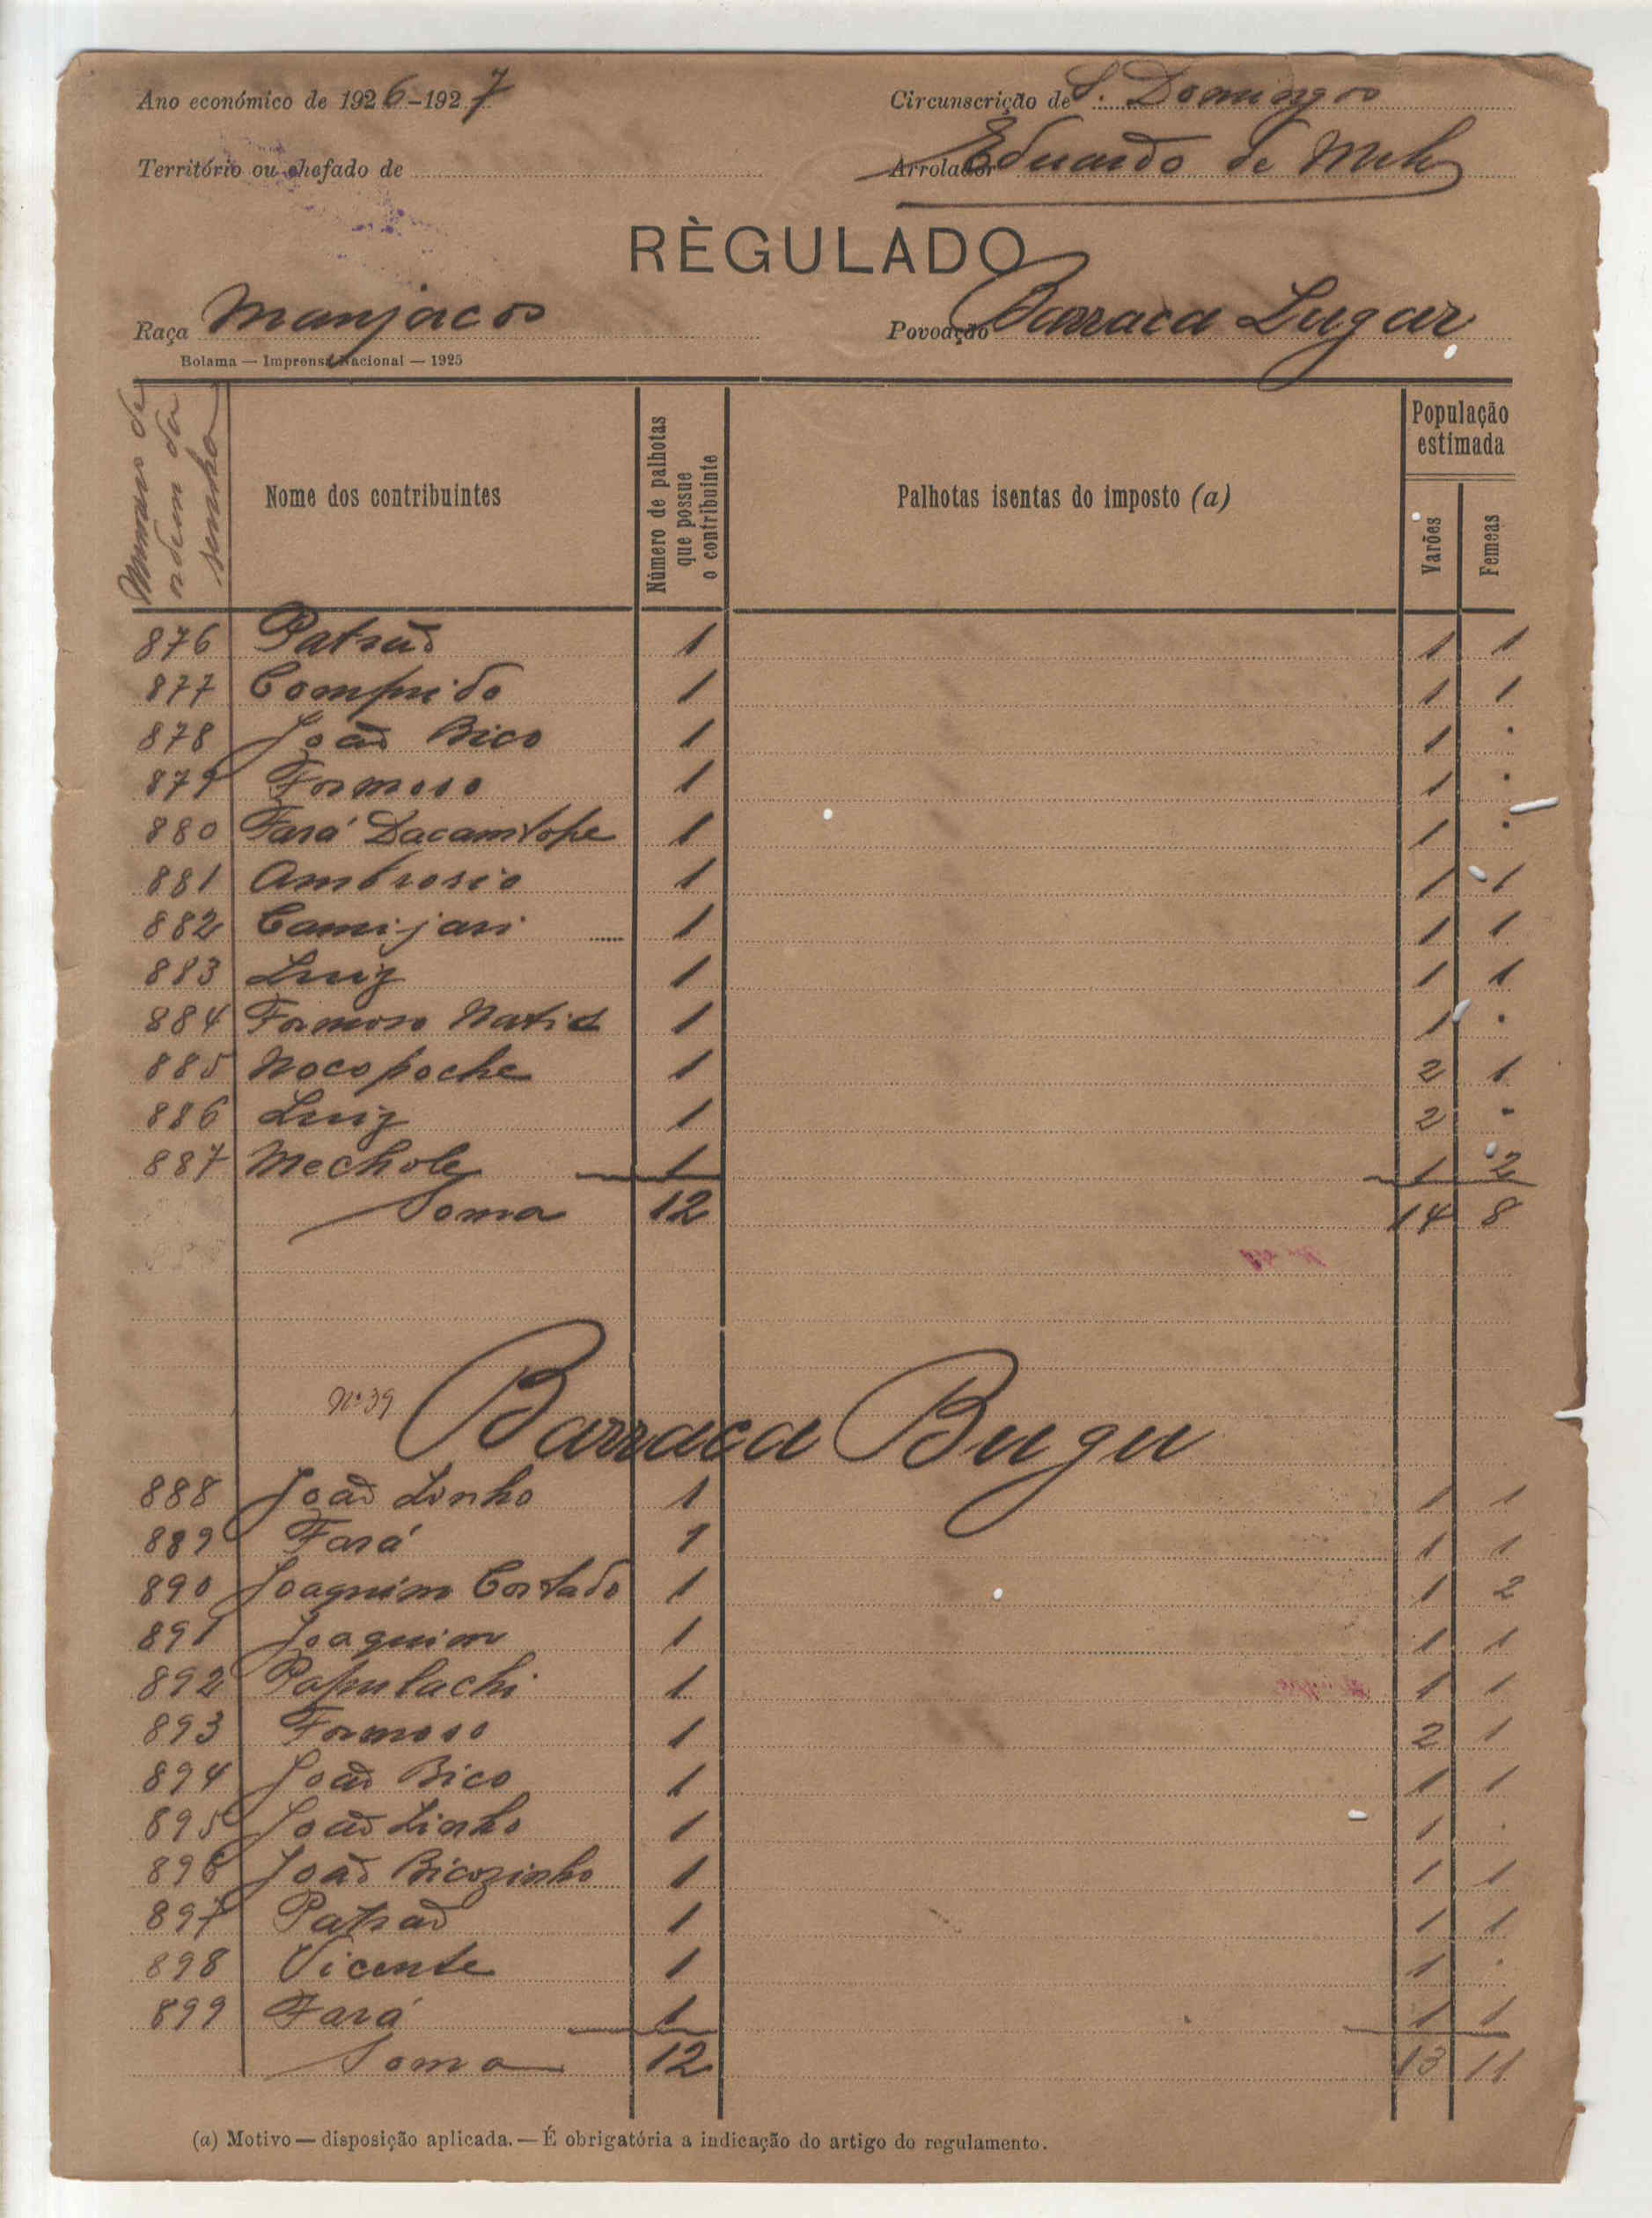 Ano económico de 1926-1927 Circunscrição de S. Domingos
Território ou chefado de Arrolador Eduardo de Melo
RÈGULADO
Raça Manjacos Povoação Barraca Lugar
Bolama — Imprensa Nacional — 1925
Numero de ordem da senha
Nome dos contribuintes
Número de palhotas que possue o contribuinte
Palhotas isentas do imposto (a)
População estimada
Varões Femeas
876 Patrão 1 1 1
877 Comprido 1 1 1
878 João Bico 1 1 .
879 Formoso 1 1 .
880 Fará Dacamtope 1 1 .
881 Ambrosio 1 1 1
882 Camijari 1 1 1
883 Luiz 1 1 1
884 Formoso Natid 1 1 .
885 Nocopoche 1 2 1
886 Luiz 1 2 .
887 Mechole 1 1 2
Soma 12 14 8
Nº 39 Barraca Bugu
888 João Linho 1 1 1
889 Fará 1 1 1
890 Joaquim Cortado 1 1 2
891 Joaquim 1 1 1
892 Papulachi 1 1 1
893 Formoso 1 2 1
894 João Bico 1 1 1
895 João Linho 1 1 .
896 João Bicozinho 1 1 1
897 Patrão 1 1 1
898 Vicente 1 1 .
899 Fará 1 1 1
Soma 12 13 11
(a) Motivo — disposição aplicada. — É obrigatória a indicação do artigo do regulamento.